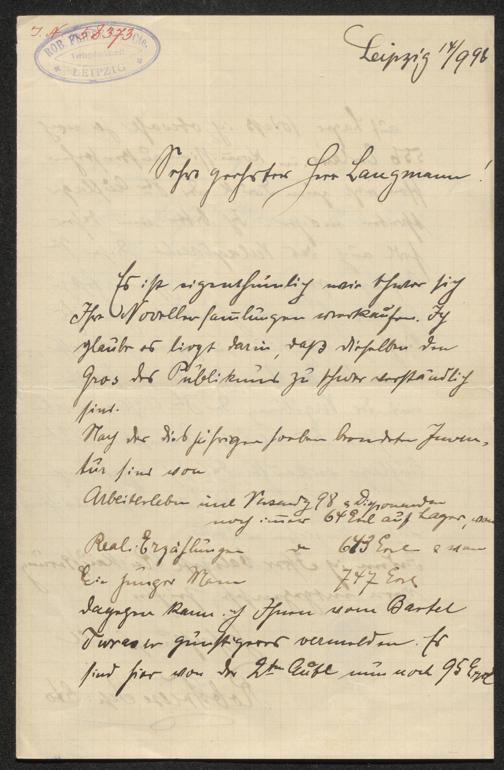 I. N. 58373
ROB. FRIESE
LEIPZIG
Leipzig 14/9 98
Sehr geehrter Herr Langmann!
Es ist eigenthümlich wie schwer sich
Ihre Novellensammlungen verkaufen. Ich
glaube es liegt darin, daß dieselben dem
Gros des Publikums zu schwer verständlich
sind.
Nach der diesjährigen soeben beendeten Inven-
tur sind von
Arbeiterleben incl Versandt 98 & Disponenden
noch immer 64 Expl auf Lager, von
Real. Erzählungen do 643 Expl & von
Ein junger Mann 747 Expl
dagegen kann ich Ihnen vom Bartel
Turaser günstigeres vermelden. Es
sind hier von der 2ten Aufl nun noch 95 Expl